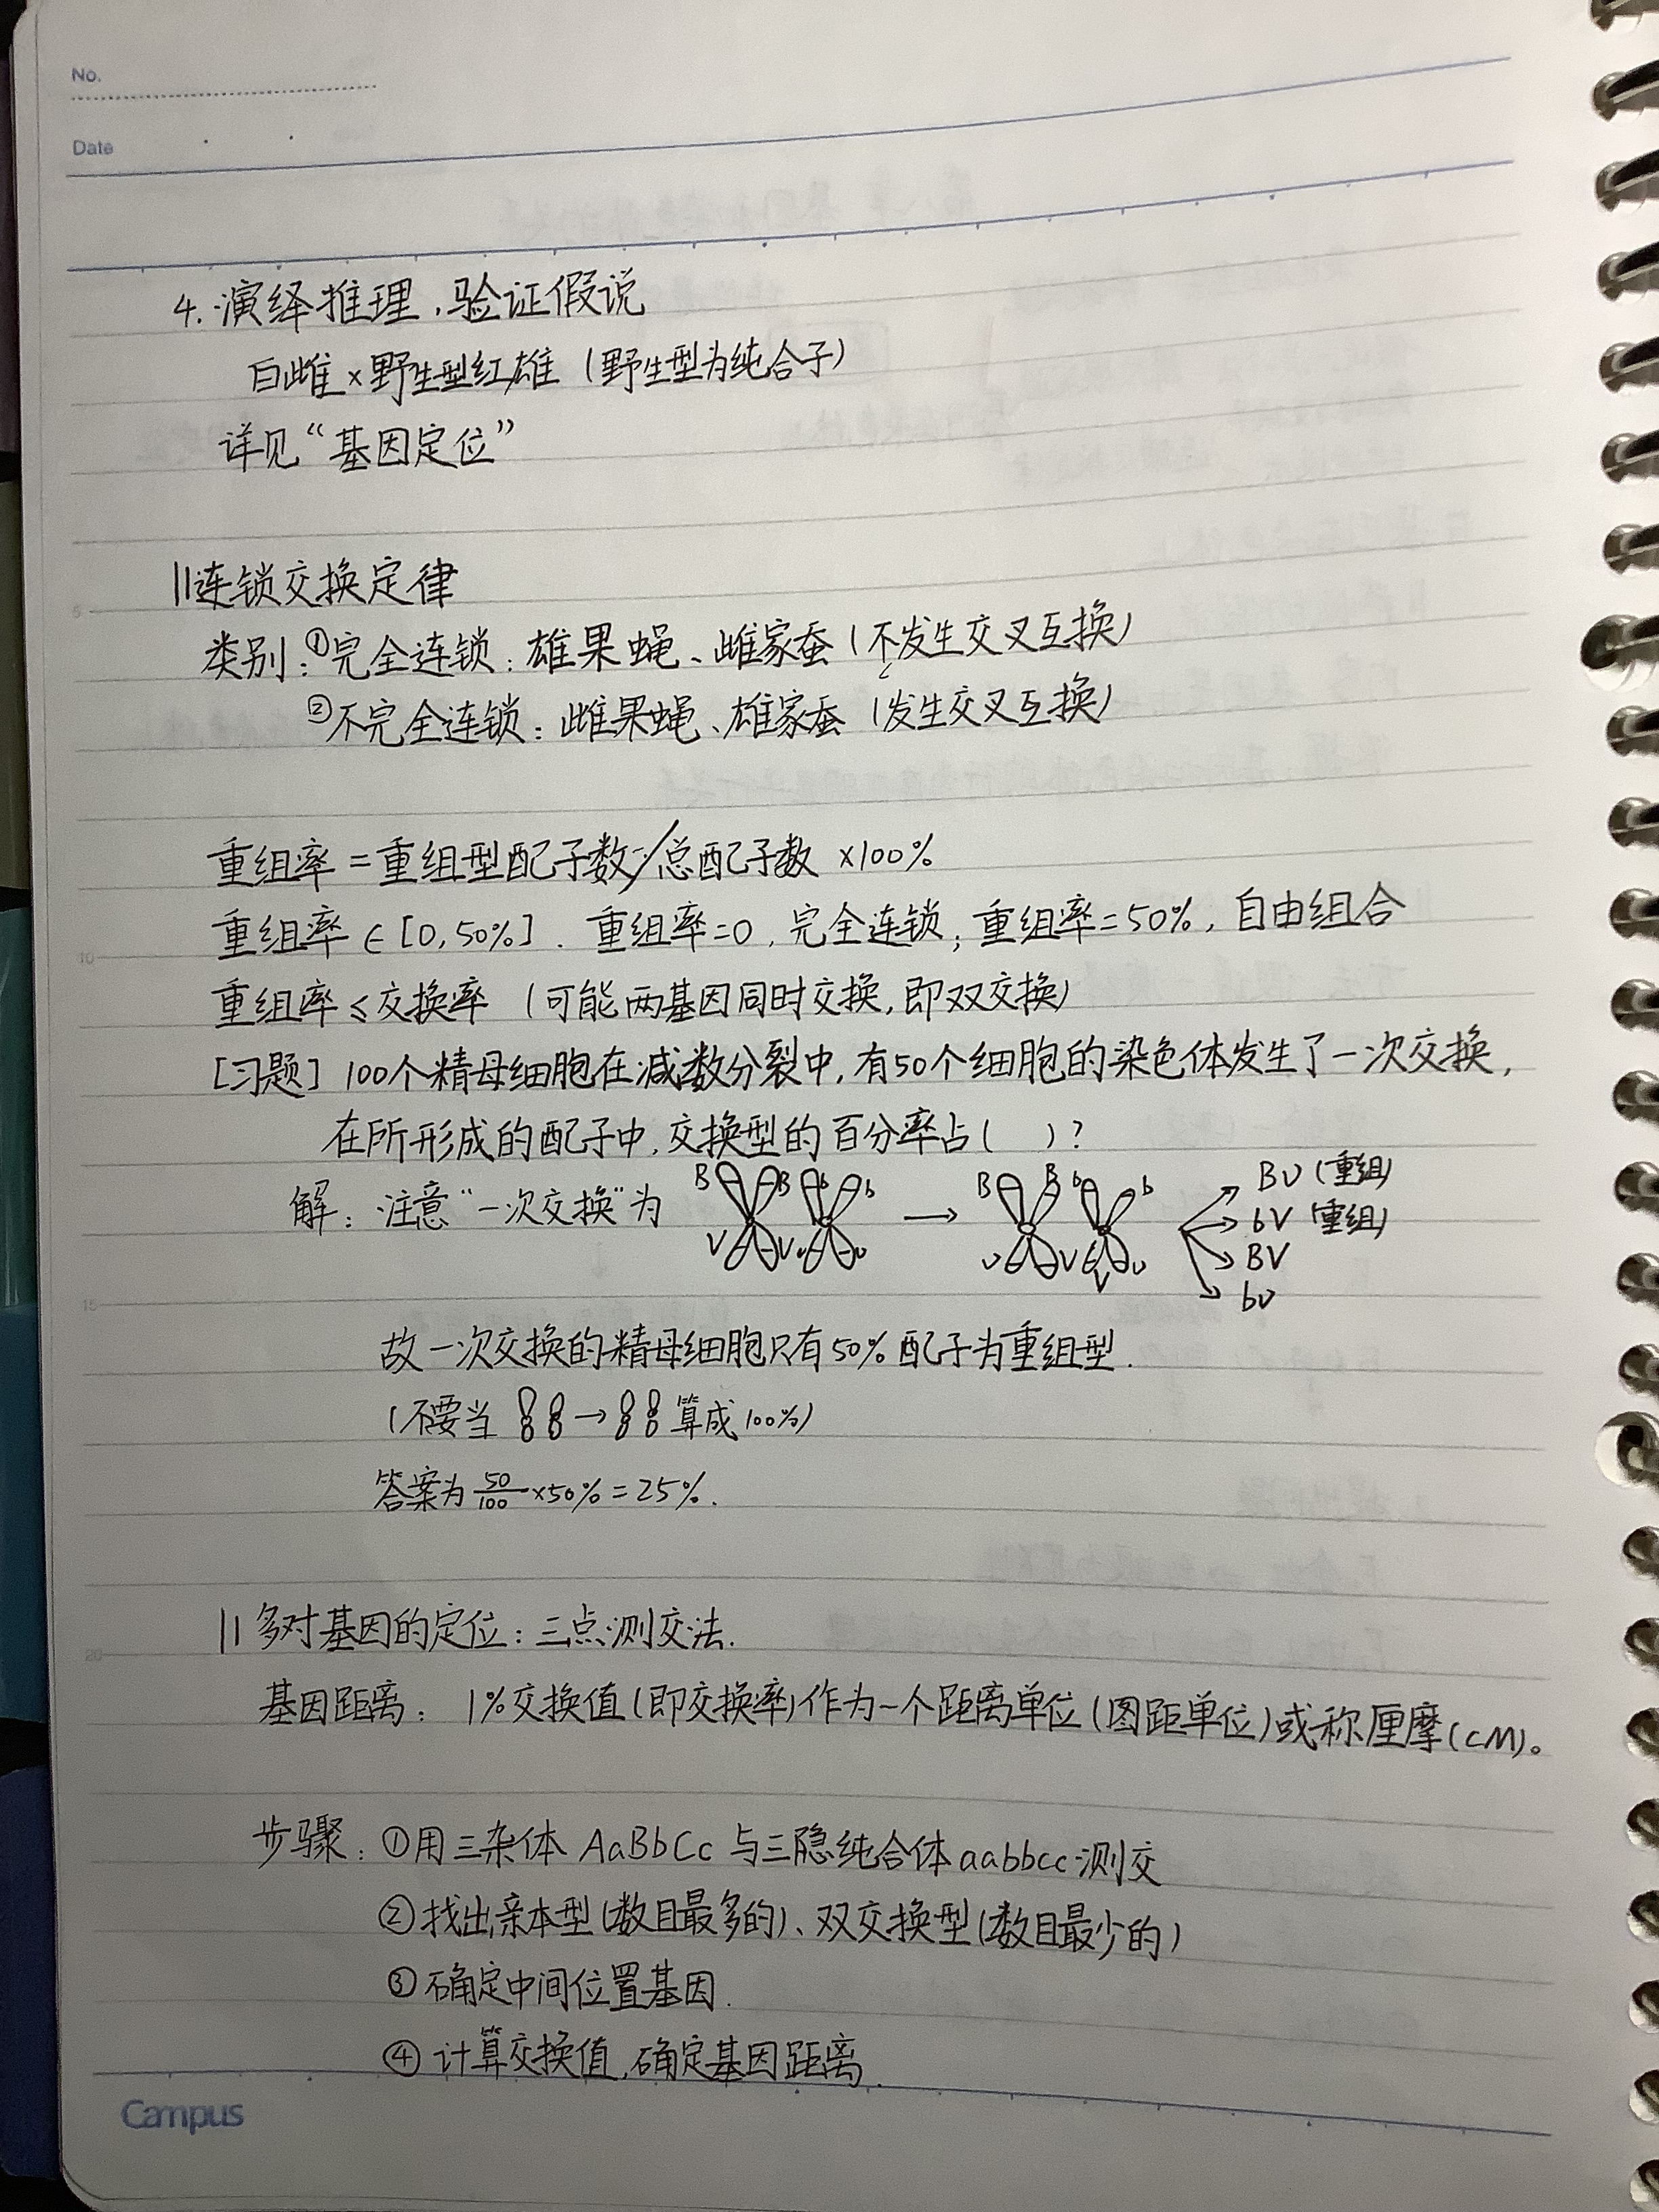 No.
Date
4. 演绎推理,验证假说
白雌×野生型红雄(野生型为纯合子)
详见“基因定位”
||连锁交换定律
类别:①完全连锁:雄果蝇、雌家蚕(不发生交叉互换)
②不完全连锁:雌果蝇、雄家蚕(发生交叉互换)
重组率=重组型配子数/总配子数 ×100%
重组率∈[0,50%]. 重组率=0,完全连锁;重组率=50%,自由组合
重组率≤交换率(可能两基因同时交换,即双交换)
[习题] 100个精母细胞在减数分裂中,有50个细胞的染色体发生了一次交换,
在所形成的配子中,交换型的百分率占( )?
解:注意“一次交换”为 B B b b V V v v → B B b b v V V v Bv(重组)
bV(重组)
BV
bv
故一次交换的精母细胞只有50%配子为重组型.
(不要当 → 算成100%)
答案为 50/100 ×50%=25%.
|| 多对基因的定位:三点测交法.
基因距离: 1%交换值(即交换率)作为一个距离单位(图距单位)或称厘摩(cM)。
步骤:①用三杂体 AaBbCc 与三隐纯合体 aabbcc 测交
②找出亲本型(数目最多的)、双交换型(数目最少的)
③确定中间位置基因.
④计算交换值,确定基因距离.
5
10
15
20
Campus